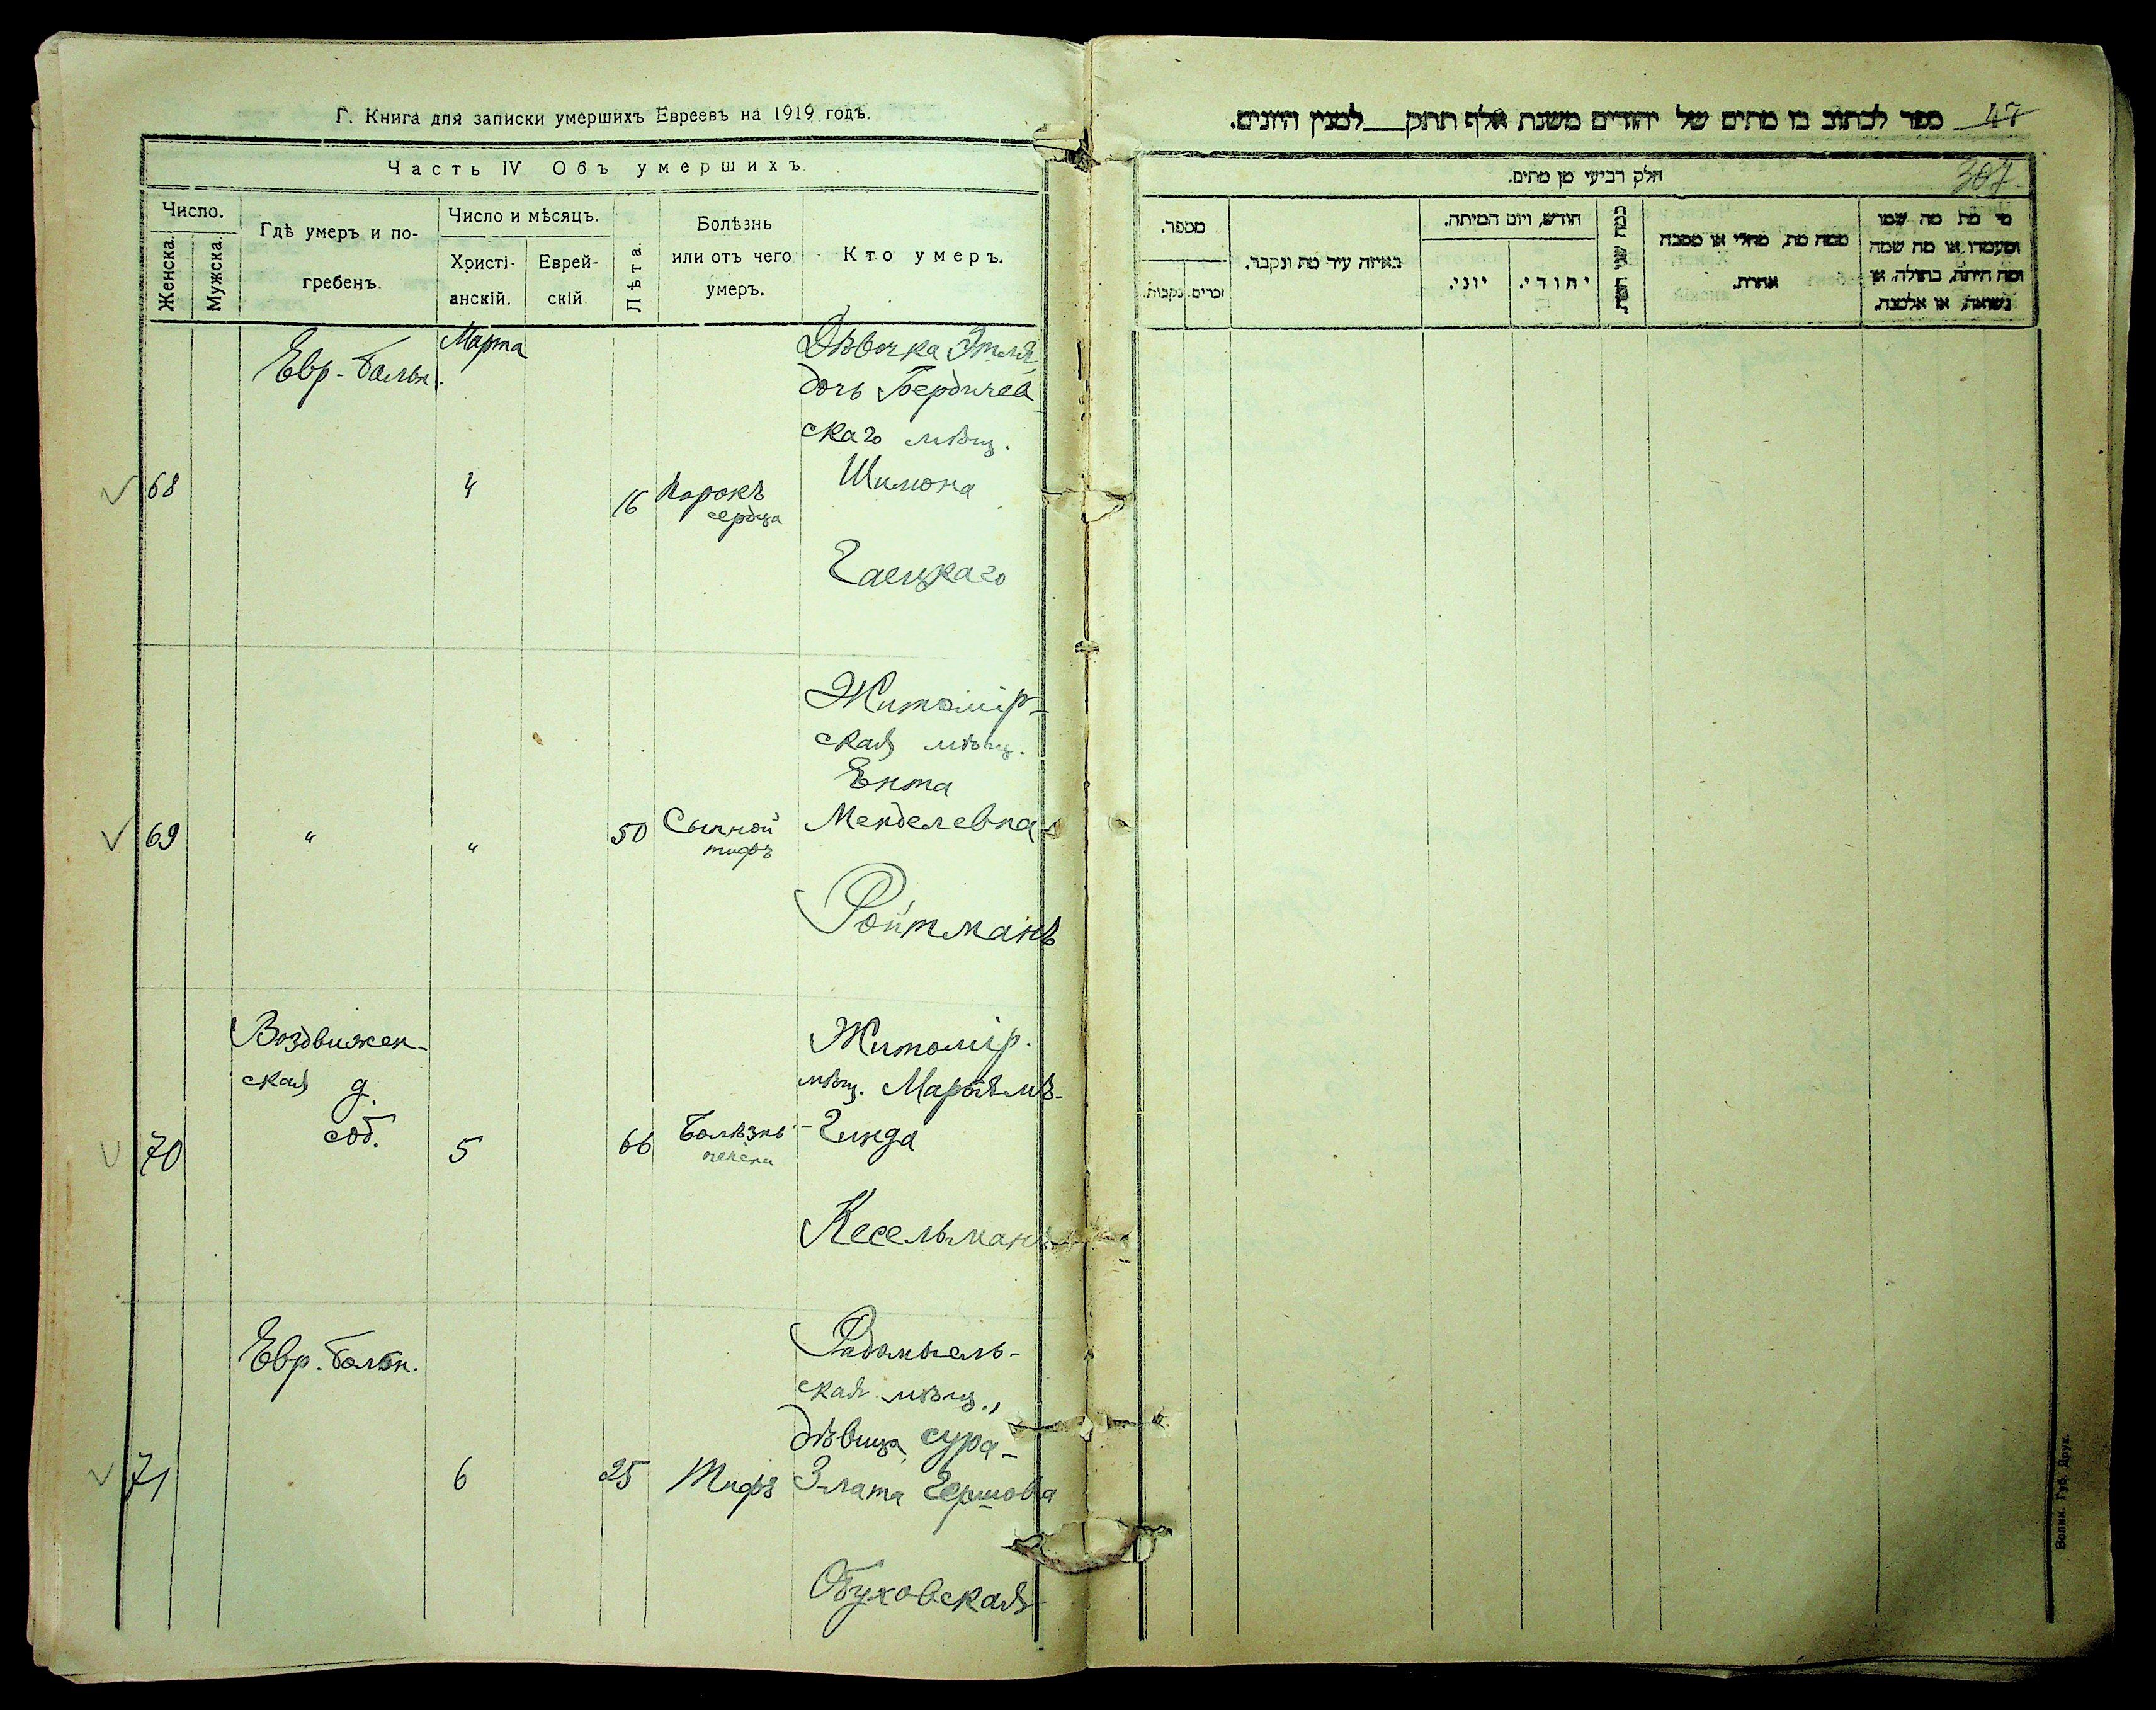 Г. Книга для записки умершихъ Евреевъ на 1919 годъ.
Часть IV Объ умершихъ
Число.
Женска.
Мужска.
Гдѣ умеръ и по-
гребенъ.
Число и мѣсяцъ.
Христі-
анскій.
Еврей-
скій
Лѣта.
Болѣзнь
или отъ чего
умеръ.
Кто умеръ.
Евр-больн.
Марта
Дѣвочка Этля
дочь Бердичев
скаго мѣщ.
68
4
16
Порокъ
сердца
Шимона
Гаецкаго
Житомір-
ская мѣщ.
Ента
69
"
"
50
Сыпной
тифъ
Менделевна
Ройтманъ
Воздвижен-
ская д.
соб.
Житомір.
мѣщ. Марьямъ-
70
5
66
Болѣзнь
печени
-Гинда
Кесельманъ
Евр. больн.
Радомысль-
ская мѣщ.,
дѣвица Сура-
71
6
25
Тифъ
Злата Гершова
Обуховская
47
ספר לכתוב בו מתים של יהודים משנת אלף תתק___למנין היונים.
307.
חלק רביעי מן מתים.
מספר.
זכרים.
נקבות.
באיזה עיר מת ונקבר.
חודש, ויום המיתה.
יוני.
יהודי.
כמה שני המת
ממה מת, מחלי או מסבה
אחרת.
מי מת מה שמו
ומעמדו או מה שמה
ומה היתה, בתולה, או
נשואה, או אלמנה.
Волын. Губ. Друк.